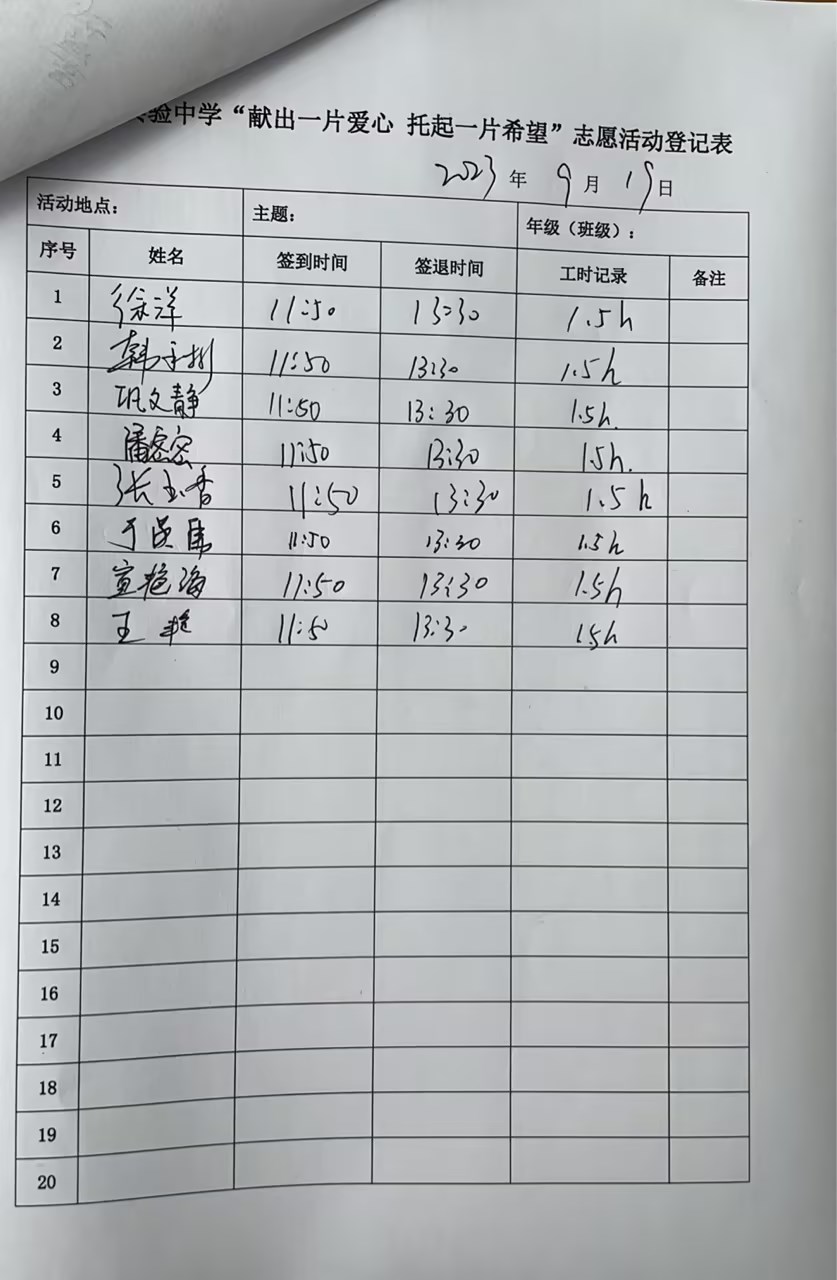 验中学“献出一片爱心 托起一片希望”志愿活动登记表
2023 年 9 月 19 日
活动地点： 主题： 年级（班级）：
序号 姓名 签到时间 签退时间 工时记录 备注
1 徐洋 11:50 13:30 1.5h
2 韩 11:50 13:30 1.5h
3 巩文静 11:50 13:30 1.5h.
4 潘密密 11:50 13:30 1.5h.
5 张玉香 11:50 13:30 1.5h
6 于 11:50 13:30 1.5h
7 宣艳海 11:50 13:30 1.5h
8 王艳 11:50 13:30 1.5h
9
10
11
12
13
14
15
16
17
18
19
20